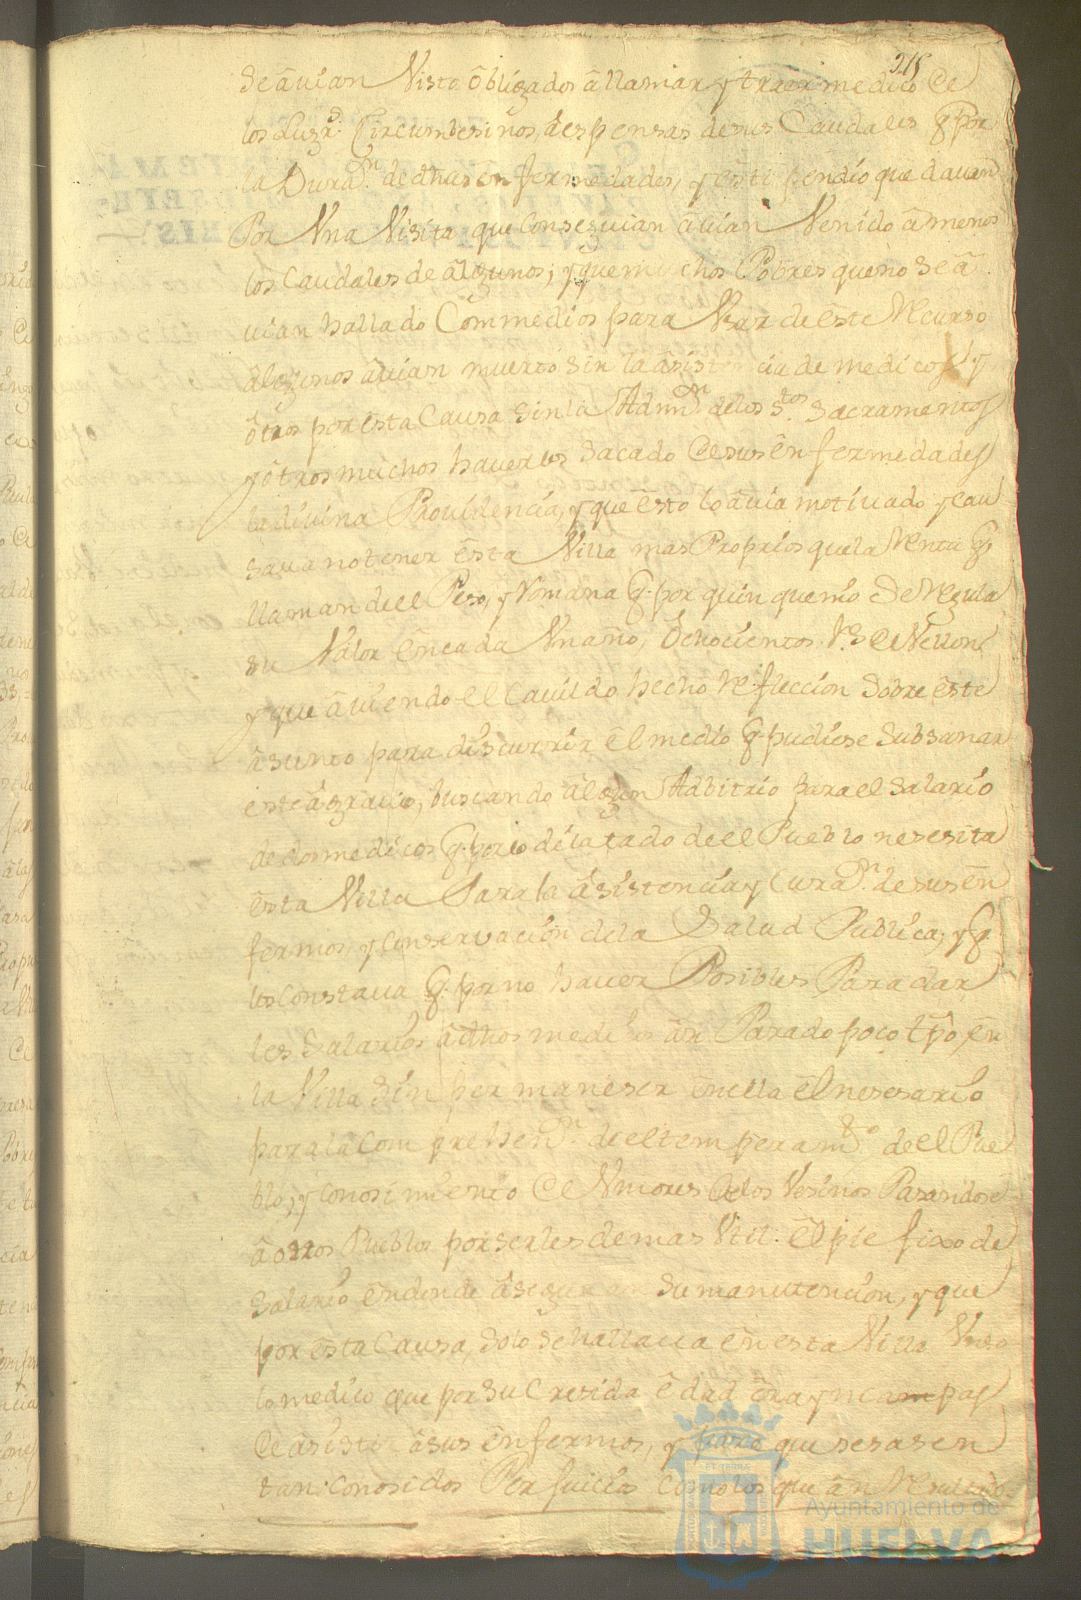 215
Se avian Visto obligados a llamar y traer medico de
los Lugrs. Circumbesinos, despensas de sus Caudales q. por
la Duran. de dhas enfermedades, y estipendio que davan
Por Una Visita que conseguian avian Venido a menos
los Caudales de algunos; y que muchos Pobres que no se a
vian hallado Con medios para Usar de este Recurso
algunos avian muerto sin la asistencia de medicos, y
otros por esta Causa sin la Admon. de los Stos. Sacramentos
y otros muchos haverlos sacado de sus enfermedades
la divina Providencia, y que esto lo avia motivado y cau
sava no tener esta Villa mas Proprios que la Renta q.
llaman de el Peso, y Romana q. por quinquenio se Regula
su Valor en cada Un año, Ochocientos Rs. de Vellon
y que aviendo el Cavildo hecho Refleccion sobre este
asunto para discurrir el medio q. pudiese Subsanar
este agravio, buscando algun Adbitrio para el Salario
de dos medicos q. por lo dilatado de el Pueblo nesesita
esta Villa Para la asistencia y Curan. de sus en
fermos, y Conservacion de la Salud Publica; y q.
les Constava q. por no haver Posibles Para dar
les Salarios a dhos medicos an Parado poco tpo en
la Villa sin permaneser en ella el nesesario
para la Comprehenon. de el temperamto. de el Pue
blo, y Conosimiento de Umores de los Vesinos Pasandose
a otros Pueblos por serles de mas Util el pie fixo de
Salario en donde aseguran su manutension, y que
por esta Causa solo se hallava en esta Villa Un so
lo medico que por su Cresida edad era yncampas
de asistir a sus enfermos, y para que sesasen
tan Conosidos Perjuicios Como los que an Resultado
Ayuntamiento de
HUELVA